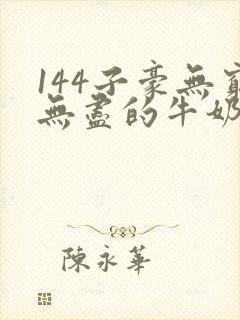 144子豪無窮
無盡的牛奶
陳永華